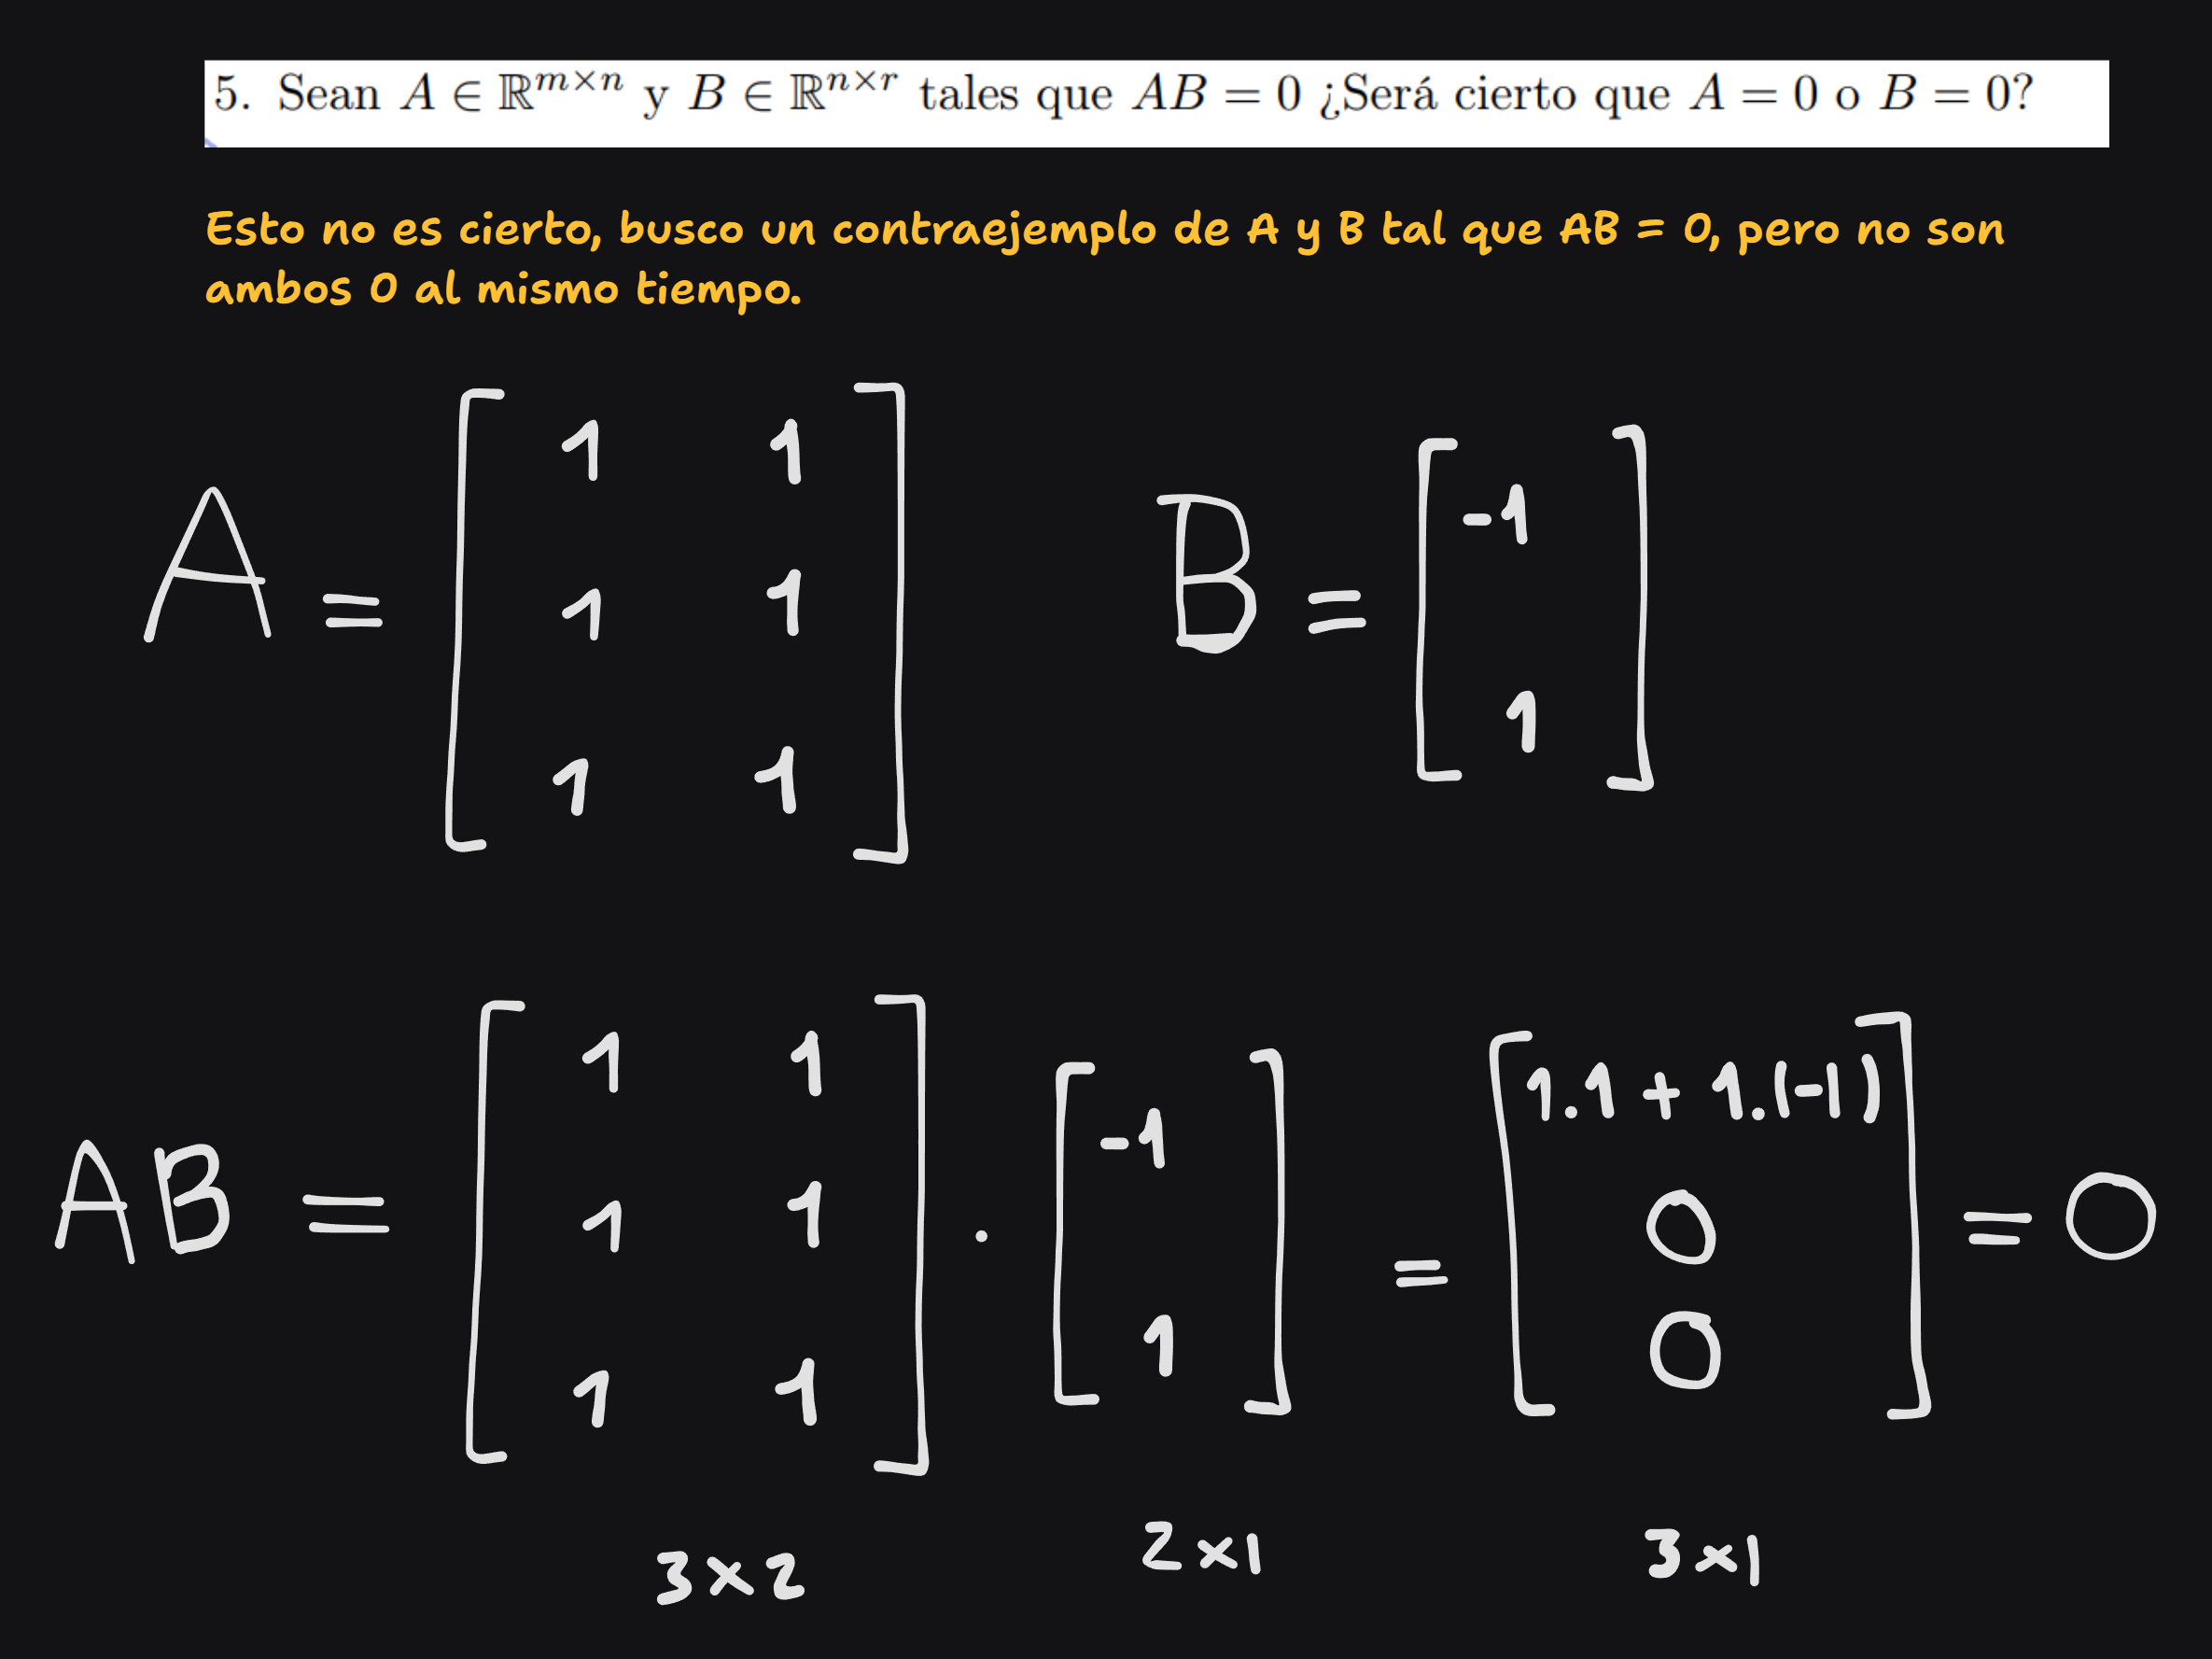 5. Sean A ∈ ℝ^{m×n} y B ∈ ℝ^{n×r} tales que AB = 0 ¿Será cierto que A = 0 o B = 0?
Esto no es cierto, busco un contraejemplo de A y B tal que AB = 0, pero no son
ambos 0 al mismo tiempo.
A = [ 1 1
1 1
1 1 ]
B = [ -1
1 ]
AB = [ 1 1
1 1
1 1 ] . [ -1
1 ] = [ 1.1 + 1.(-1)
0
0 ] = 0
3×2 2×1 3×1